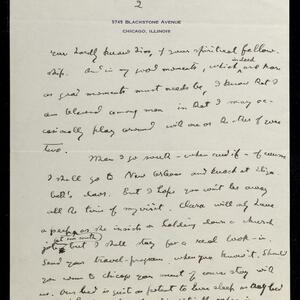 2
5749 BLACKSTONE AVENUE
CHICAGO, ILLINOIS
your lordly knowing of your spiritual fellow
ship. And in my good moments, which indeed are rare
as good moments must needs be, I know that I
am blessed among men in that I may oc-
casionally play around with one or the other of
two.
When I go south – when and if – of course
I shall go to New Orleans and knock at Eliza
beth's door. But I hope you won't be away
all the time of my visit. Clara will
as she insists on holding down a church
job but I shall beg for a real look-in.
Send your travel-program, when you know it. Should
you come to Chicago you must of course stay with
us. Our bed is just as potent to lure sleep as